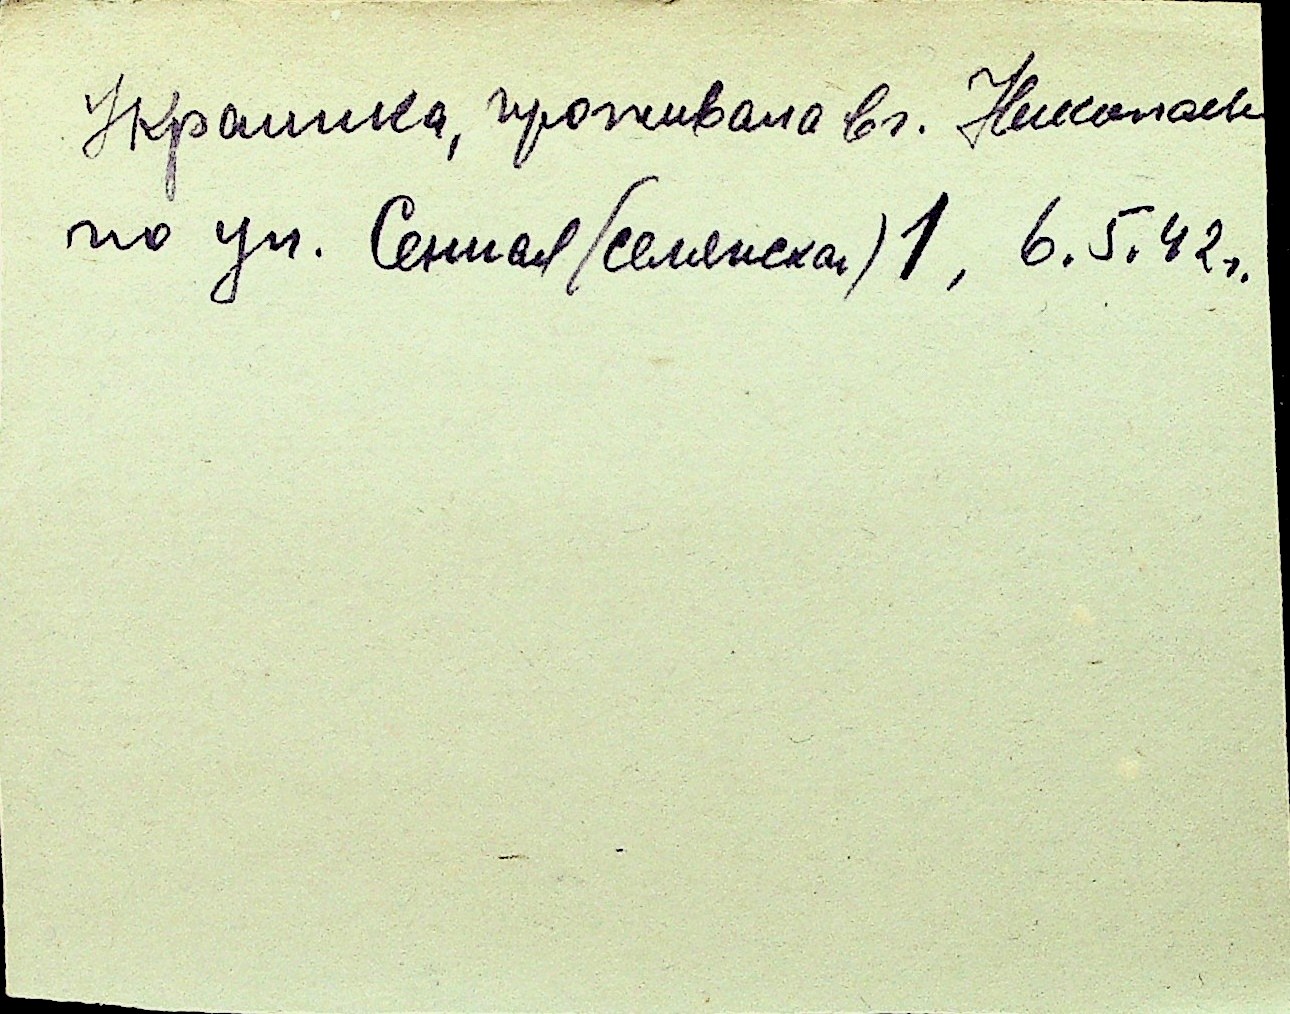 Украинка, проживала в г. Николаев
по ул. Сенная (селянская) 1, 6.5.42 г.